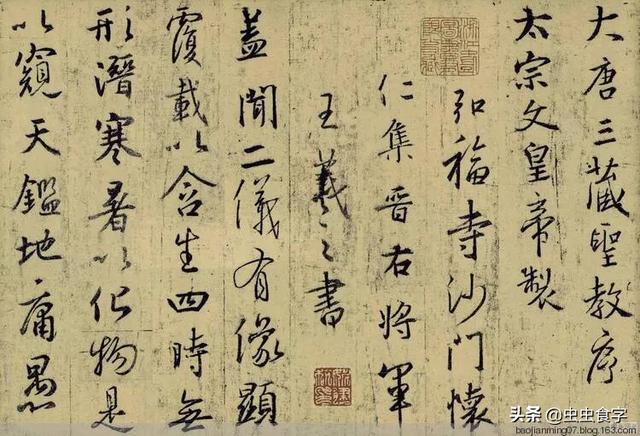 大唐三藏聖教序
太宗文皇帝製
弘福寺沙門懷
仁集晉右將軍
王羲之書
蓋聞二儀有像顯
覆載以含生四時無
形潛寒暑以化物是
以窺天鑑地庸愚
头条 @虫虫食字
baojianming07.blog.163.com